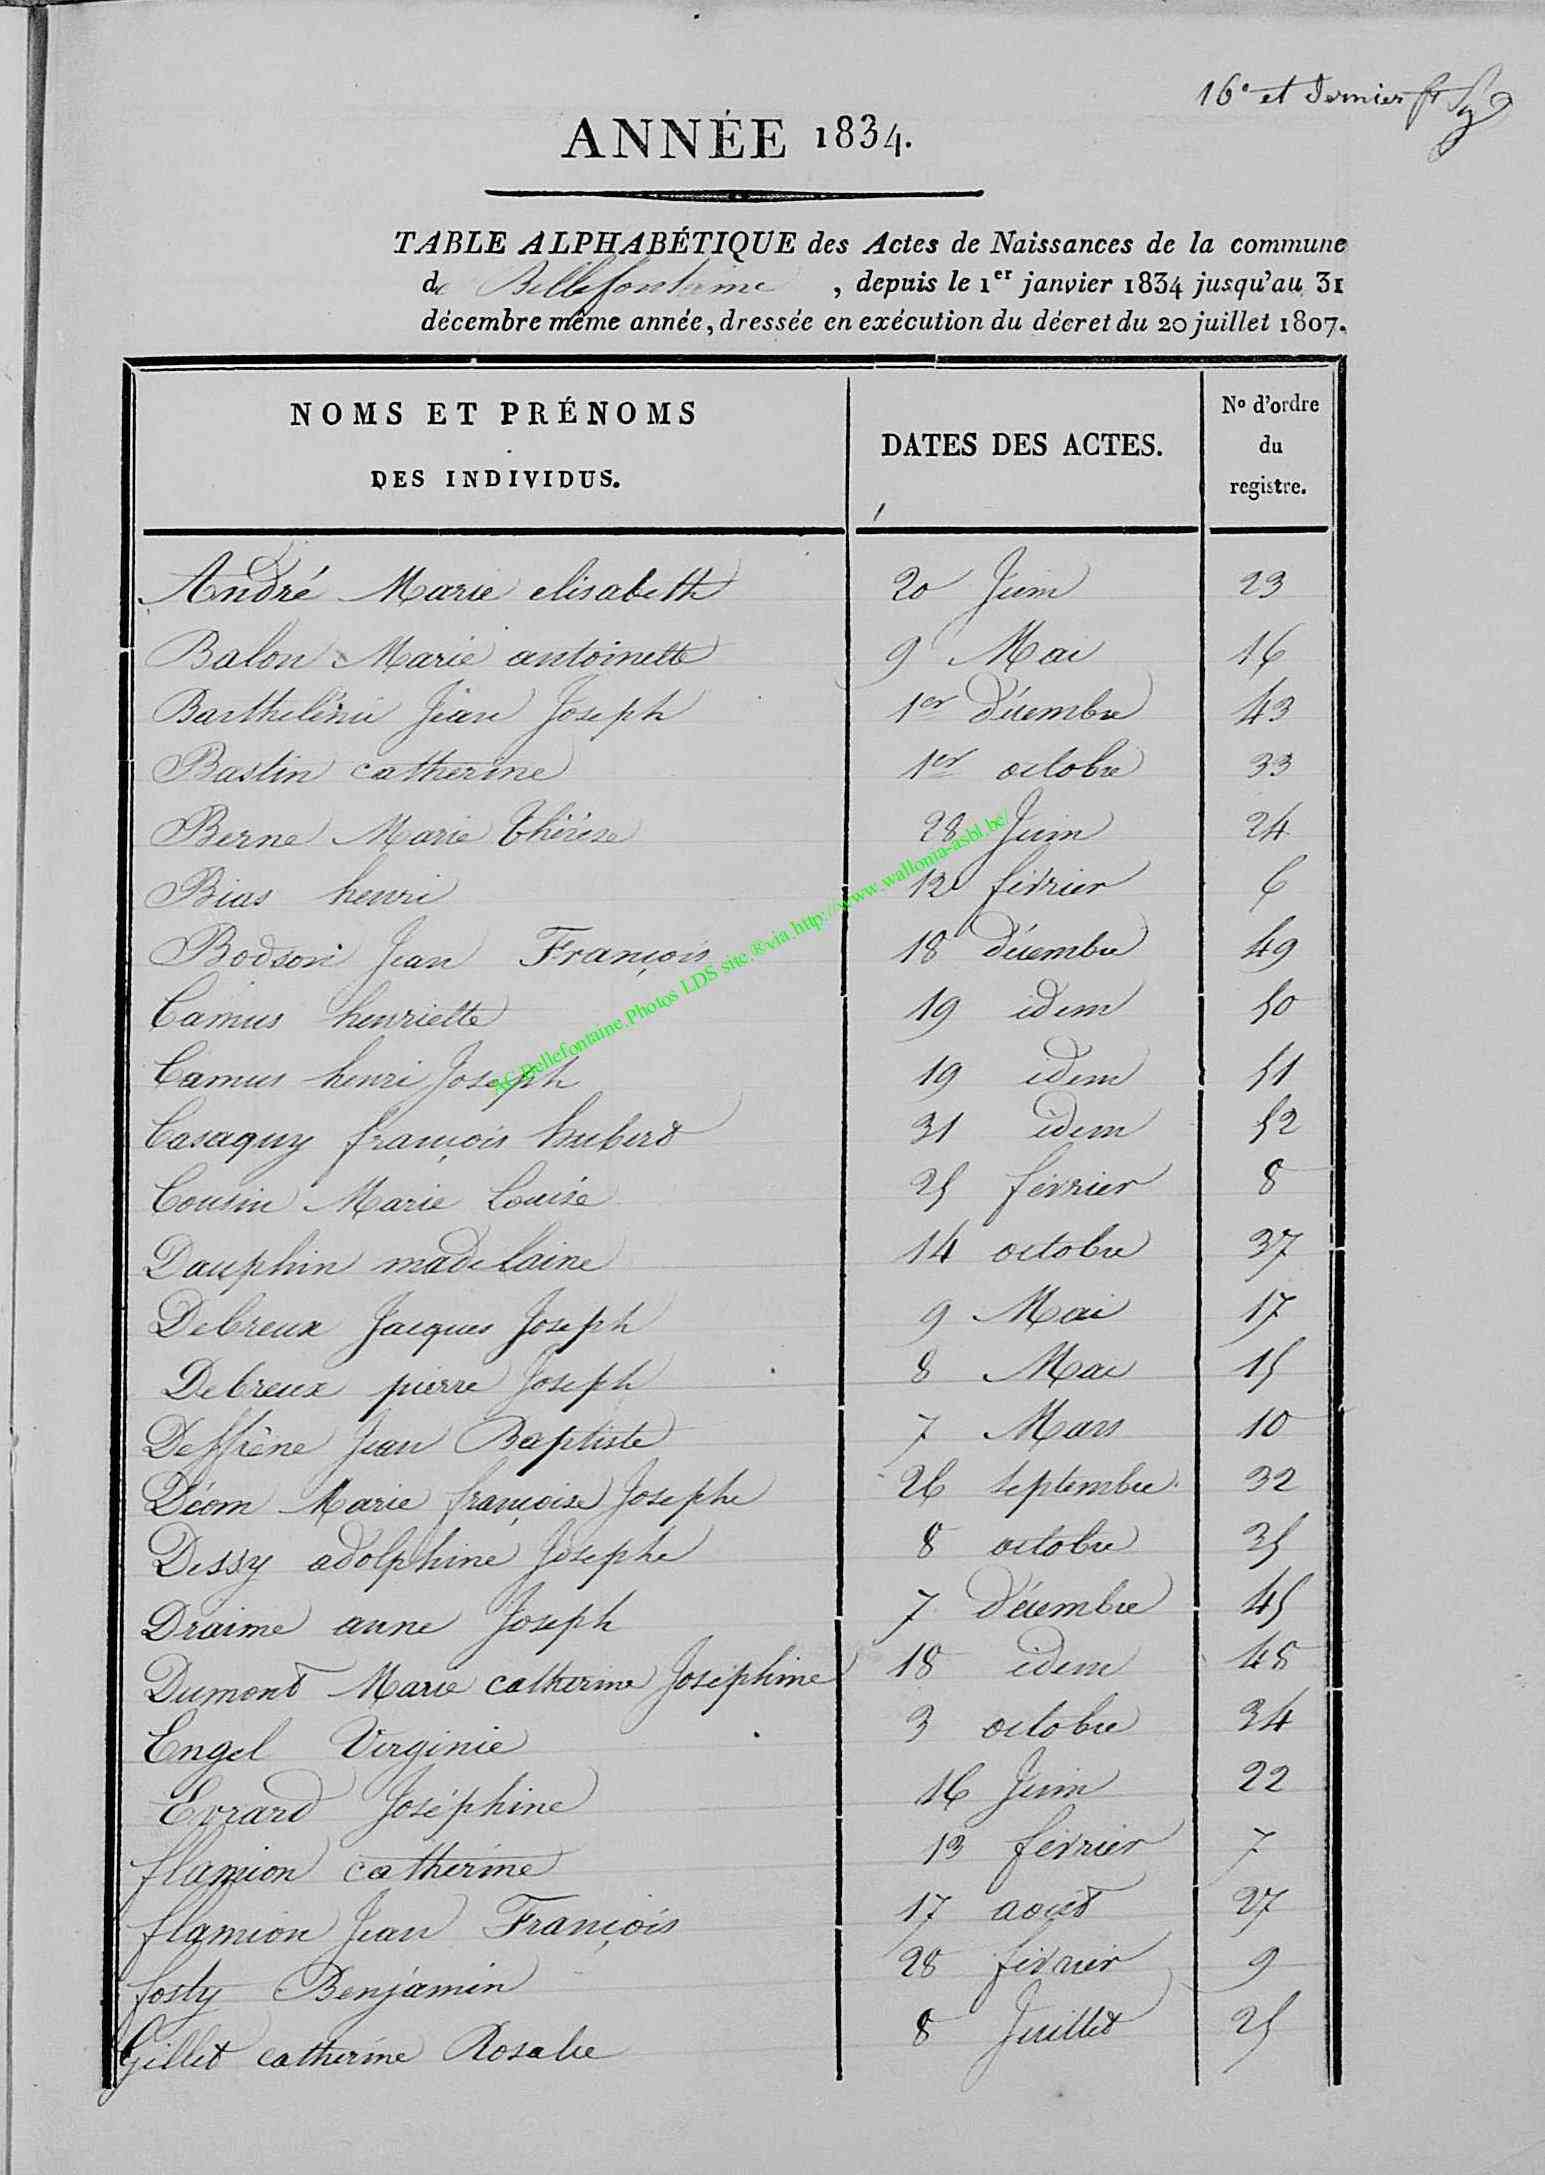 16e et dernier
ANNÉE 1834.
TABLE ALPHABÉTIQUE des Actes de Naissances de la commune
de Bellefontaine, depuis le 1er janvier 1834 jusqu'au 31
décembre même année, dressée en exécution du décret du 20 juillet 1807.
NOMS ET PRÉNOMS
DES INDIVIDUS.
DATES DES ACTES.
No d'ordre
du
registre.
André Marie elisabeth 20 Juin 23
Balon Marie antoinette 9 Mai 16
Barthelémi Jean Joseph 1er décembre 43
Bastin catherine 1er octobre 33
Berne Marie thérèse 28 Juin 24
Bias henri 12 février 6
Bodson Jean François 18 décembre 49
Camus henriette 19 idem 50
Camus henri Joseph 19 idem 51
Casaquy françois hubert 31 idem 52
Cousin Marie Louise 25 février 8
Dauphin madelaine 14 octobre 37
Debreux Jacques Joseph 9 Mai 17
Debreux pierre Joseph 8 Mai 15
Deffrêne Jean Baptiste 7 Mars 10
Déom Marie françoise Josephe 26 septembre 32
Dessy adolphine Josephe 8 octobre 35
Draime anne Joseph 7 décembre 45
Dumont Marie catherine Joséphine 18 idem 48
Engel Virginie 3 octobre 34
Evrard Joséphine 16 Juin 22
flamion catherine 13 février 7
flamion Jean François 17 août 27
fosty Benjamin 28 février 9
Gillet catherine Rosalie 8 Juillet 25
Af. Bellefontaine.Photos LDS site.®via.http://www.wallonia-asbl.be/